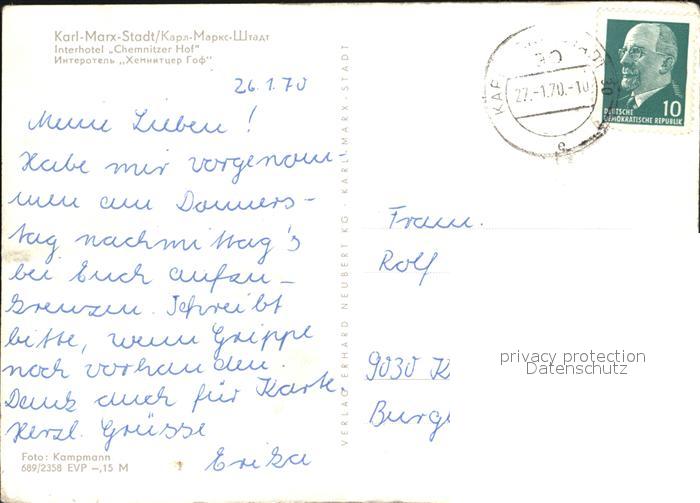 Karl-Marx-Stadt/Карл-Маркс-Штадт
Interhotel „Chemnitzer Hof"
Интеротель „Хемнитцер Гоф"
26.1.70
Meine Lieben!
Habe mir vorgenom-
men am Donners-
tag nachmittag's
bei Euch aufzu-
kreuzen. Schreibt
bitte, wenn Grippe
noch vorhanden.
Dank auch für Karte.
Herzl. Grüsse
Erika
Foto: Kampmann
689/2358 EVP –,15 M
VERLAG ERHARD NEUBERT KG · KARL-MARX-STADT
27.-1.70.-10
10
DEUTSCHE
DEMOKRATISCHE REPUBLIK
Fram.
Rolf
9030 K
Burg
privacy protection
Datenschutz